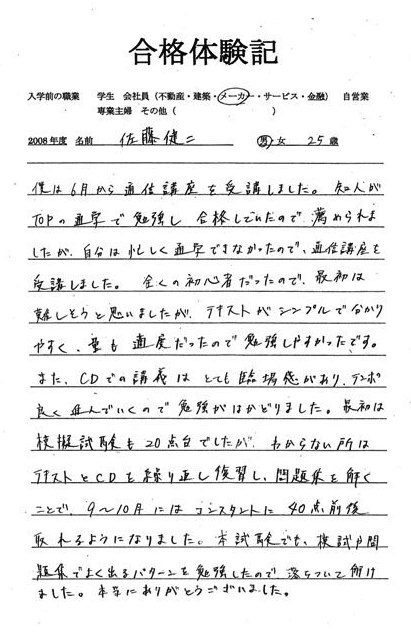 合格体験記
入学前の職業 学生 会社員（不動産・建築・メーカー・サービス・金融） 自営業
専業主婦 その他（ ）
2008年度 名前 佐藤健二 男 女 25歳
僕は6月から通信講座を受講しました。知人が
TOPの通学で勉強し合格していたので、薦められま
したが、自分は忙しく通学できなかったので、通信講座を
受講しました。全くの初心者だったので、最初は
難しそうと思いましたが、テキストがシンプルで分かり
やすく、量も適度だったので勉強しやすかったです。
また、CDでの講義はとても臨場感があり、テンポ
良く進んでいくので勉強がはかどりました。最初は
模擬試験も20点台でしたが、わからない所は
テキストとCDを繰り返し復習し、問題集を解く
ことで、9〜10月にはコンスタントに40点前後
取れるようになりました。本試験でも、模試や問
題集でよく出るパターンを勉強したので落ちついて解け
ました。本当にありがとうございました。